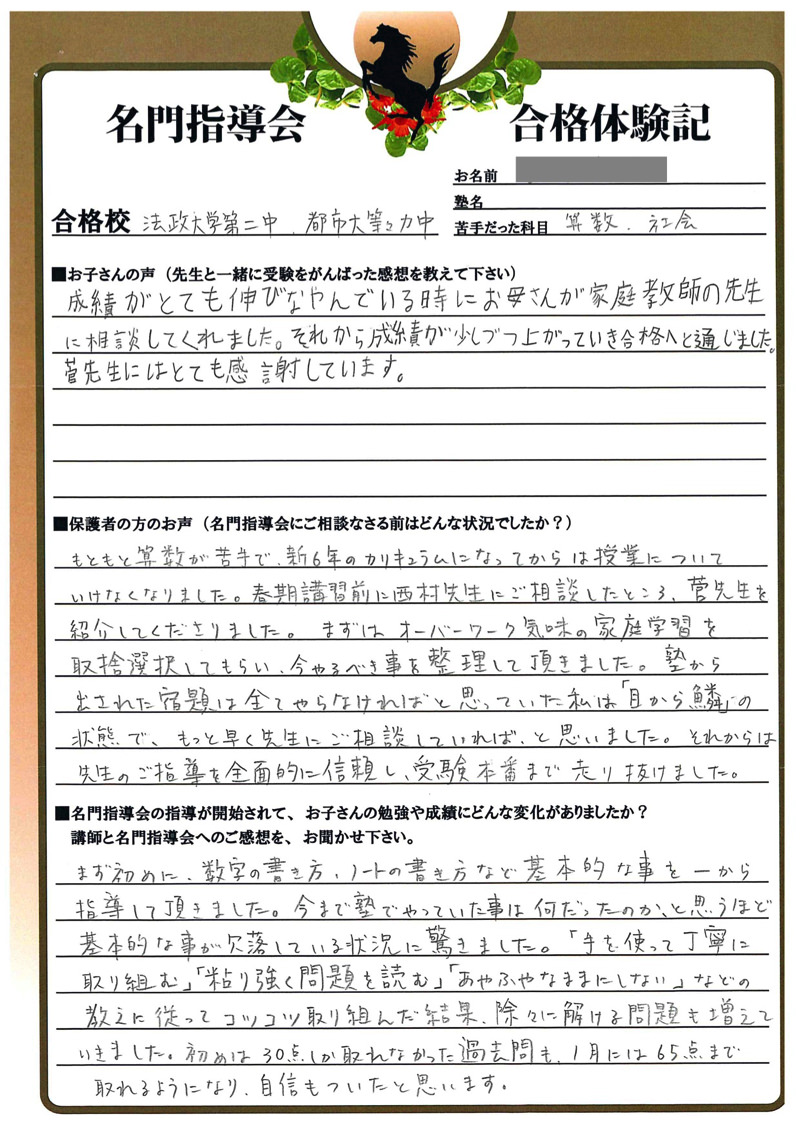 名門指導会 合格体験記
お名前
塾名
合格校 法政大学第二中、都市大等々力中 苦手だった科目 算数、社会
■お子さんの声(先生と一緒に受験をがんばった感想を教えて下さい)
成績がとても伸びなやんでいる時にお母さんが家庭教師の先生
に相談してくれました。それから成績が少しづつ上がっていき合格へと通じました。
菅先生にはとても感謝しています。
■保護者の方のお声(名門指導会にご相談なさる前はどんな状況でしたか?)
もともと算数が苦手で、新6年のカリキュラムになってからは授業について
いけなくなりました。春期講習前に西村先生にご相談したところ、菅先生を
紹介してくださりました。まずはオーバーワーク気味の家庭学習を
取捨選択してもらい、今やるべき事を整理して頂きました。塾から
出された宿題は全てやらなければと思っていた私は「目から鱗」の
状態で、もっと早く先生にご相談していれば、と思いました。それからは
先生のご指導を全面的に信頼し、受験本番まで走り抜けました。
■名門指導会の指導が開始されて、お子さんの勉強や成績にどんな変化がありましたか?
講師と名門指導会へのご感想を、お聞かせ下さい。
まず初めに、数字の書き方、ノートの書き方など基本的な事を一から
指導して頂きました。今まで塾でやっていた事は何だったのか、と思うほど
基本的な事が欠落している状況に驚きました。「手を使って丁寧に
取り組む」「粘り強く問題を読む」「あやふやなままにしない」などの
教えに従ってコツコツ取り組んだ結果、除々に解ける問題も増えて
いきました。初めは30点しか取れなかった過去問も、1月には65点まで
取れるようになり、自信もついたと思います。